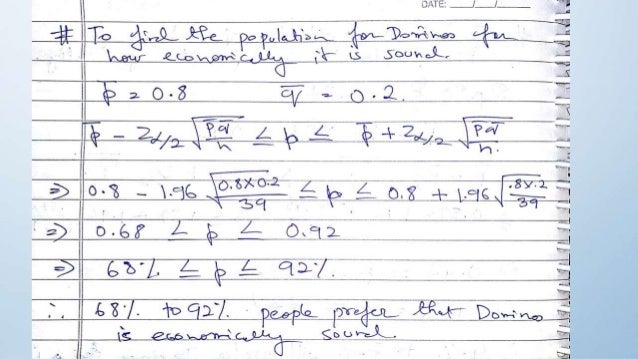 DATE:
# To find the population for Dominos for
how economically it is sound.
p̅ = 0.8 q̅ = 0.2.
p̅ - Zα/2 √(p̅q̅/n) ≤ p ≤ p̅ + Zα/2 √(p̅q̅/n)
⇒ 0.8 - 1.96 √(0.8×0.2/39) ≤ p ≤ 0.8 + 1.96 √(.8×.2/39)
⇒ 0.68 ∠ p ∠ 0.92
⇒ 68% ≤ p ≤ 92%
∴ 68% to 92% people prefer that Dominos
is economically sound.